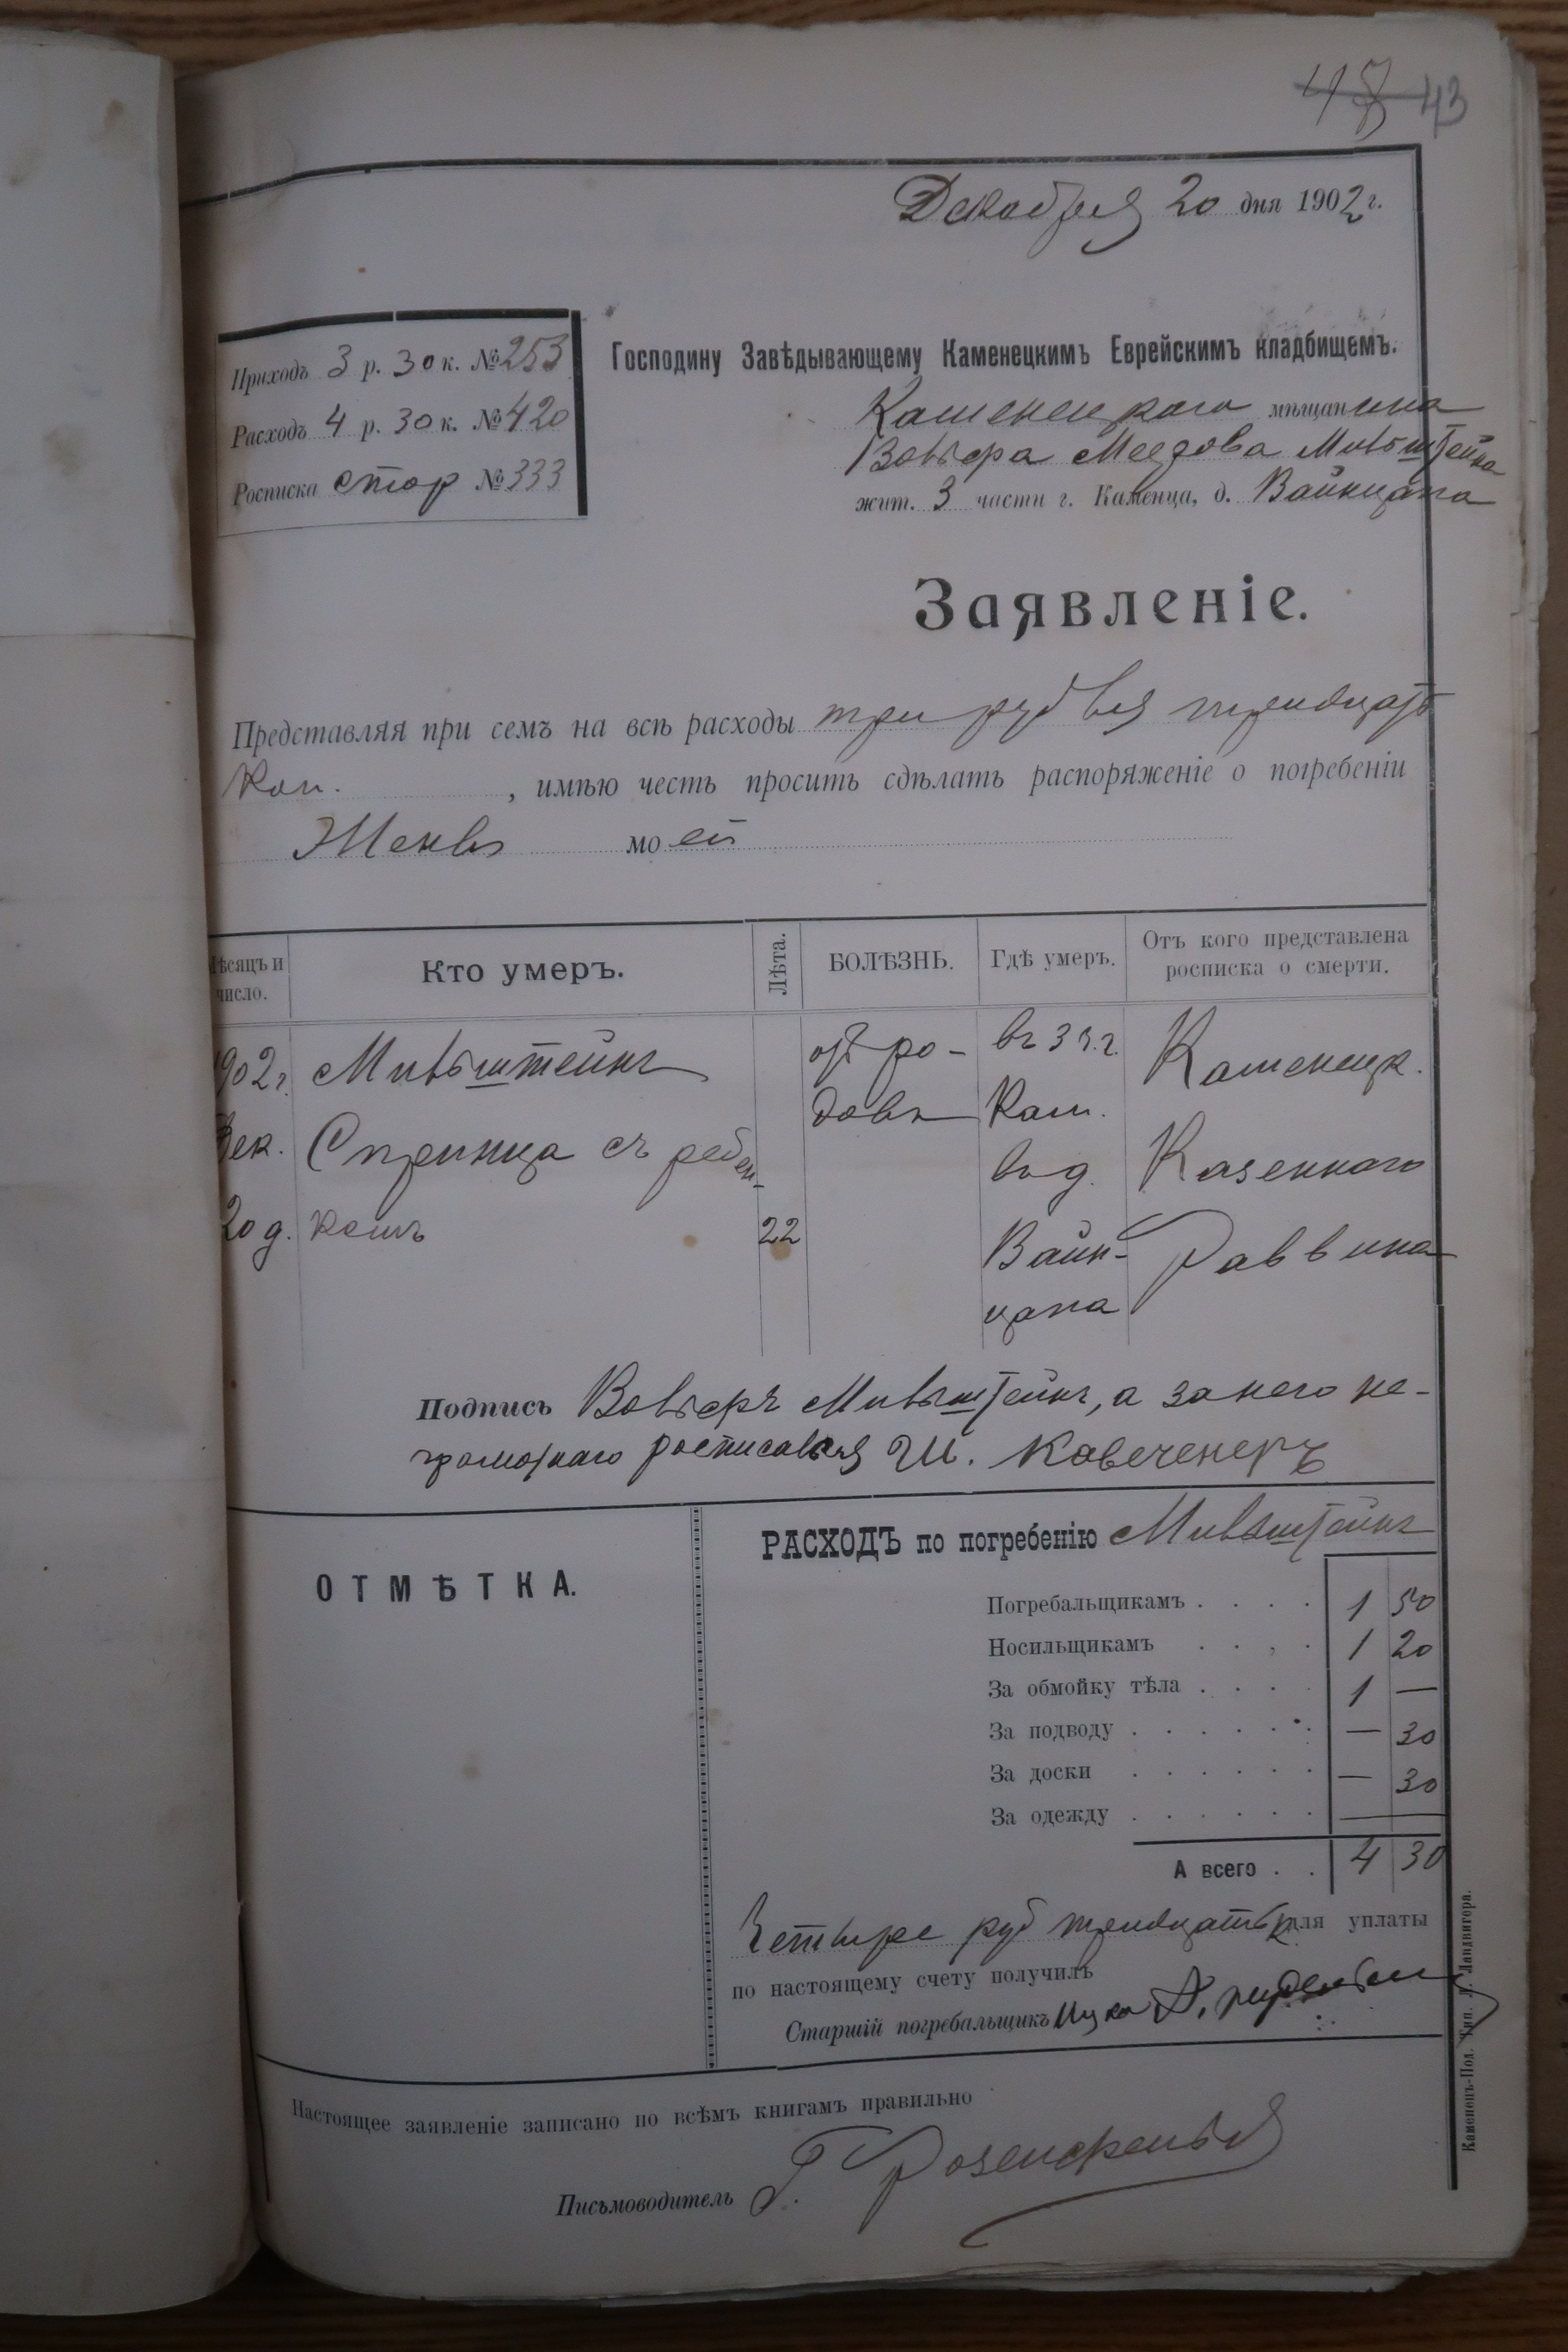 43
Декабря 20 дня 1902 г.
Приходъ 3 р. 30 к. № 253
Расходъ 4 р. 30 к. № 420
Росписка стор № 333
Господину Завѣдывающему Каменецкимъ Еврейскимъ кладбищемъ.
Каменецкаго мѣщанина
Вольфа
жит. 3 части г. Каменца, д. Вайнцапа
Заявленіе.
Представляя при семъ на всѣ расходы три рубля тридцать
коп. , имѣю честь просить сдѣлать распоряженіе о погребеніи
Жены моей
Мѣсяцъ и число.
Кто умеръ.
Лѣта.
БОЛѢЗНЬ.
Гдѣ умеръ.
Отъ кого представлена росписка о смерти.
1902 г. Дек. 20 д.
Мильштейнъ
Спринца съ ребен-
комъ
22
отъ ро-
довъ
въ 3 ч. г.
Кам.
въ д.
Вайн-
цапа
Каменецк.
Казеннаго
Раввина
Подпись Мильштейнъ, а за него не-
грамотнаго росписался Ш.
ОТМѢТКА.
РАСХОДЪ по погребенію Мильштейнъ
Погребальщикамъ . . . . 1 50
Носильщикамъ . . . . 1 20
За обмойку тѣла . . . . 1 —
За подводу . . . . . . — 30
За доски . . . . . . — 30
За одежду . . . . . . —
А всего . . 4 30
Четыре руб тридцать к для уплаты
по настоящему счету получилъ
Старшій погребальщикъ Ицко
Настоящее заявленіе записано по всѣмъ книгамъ правильно
Письмоводитель Г. Розенфельд
Каменецъ-Под. Тип. Л. Ландвигера.